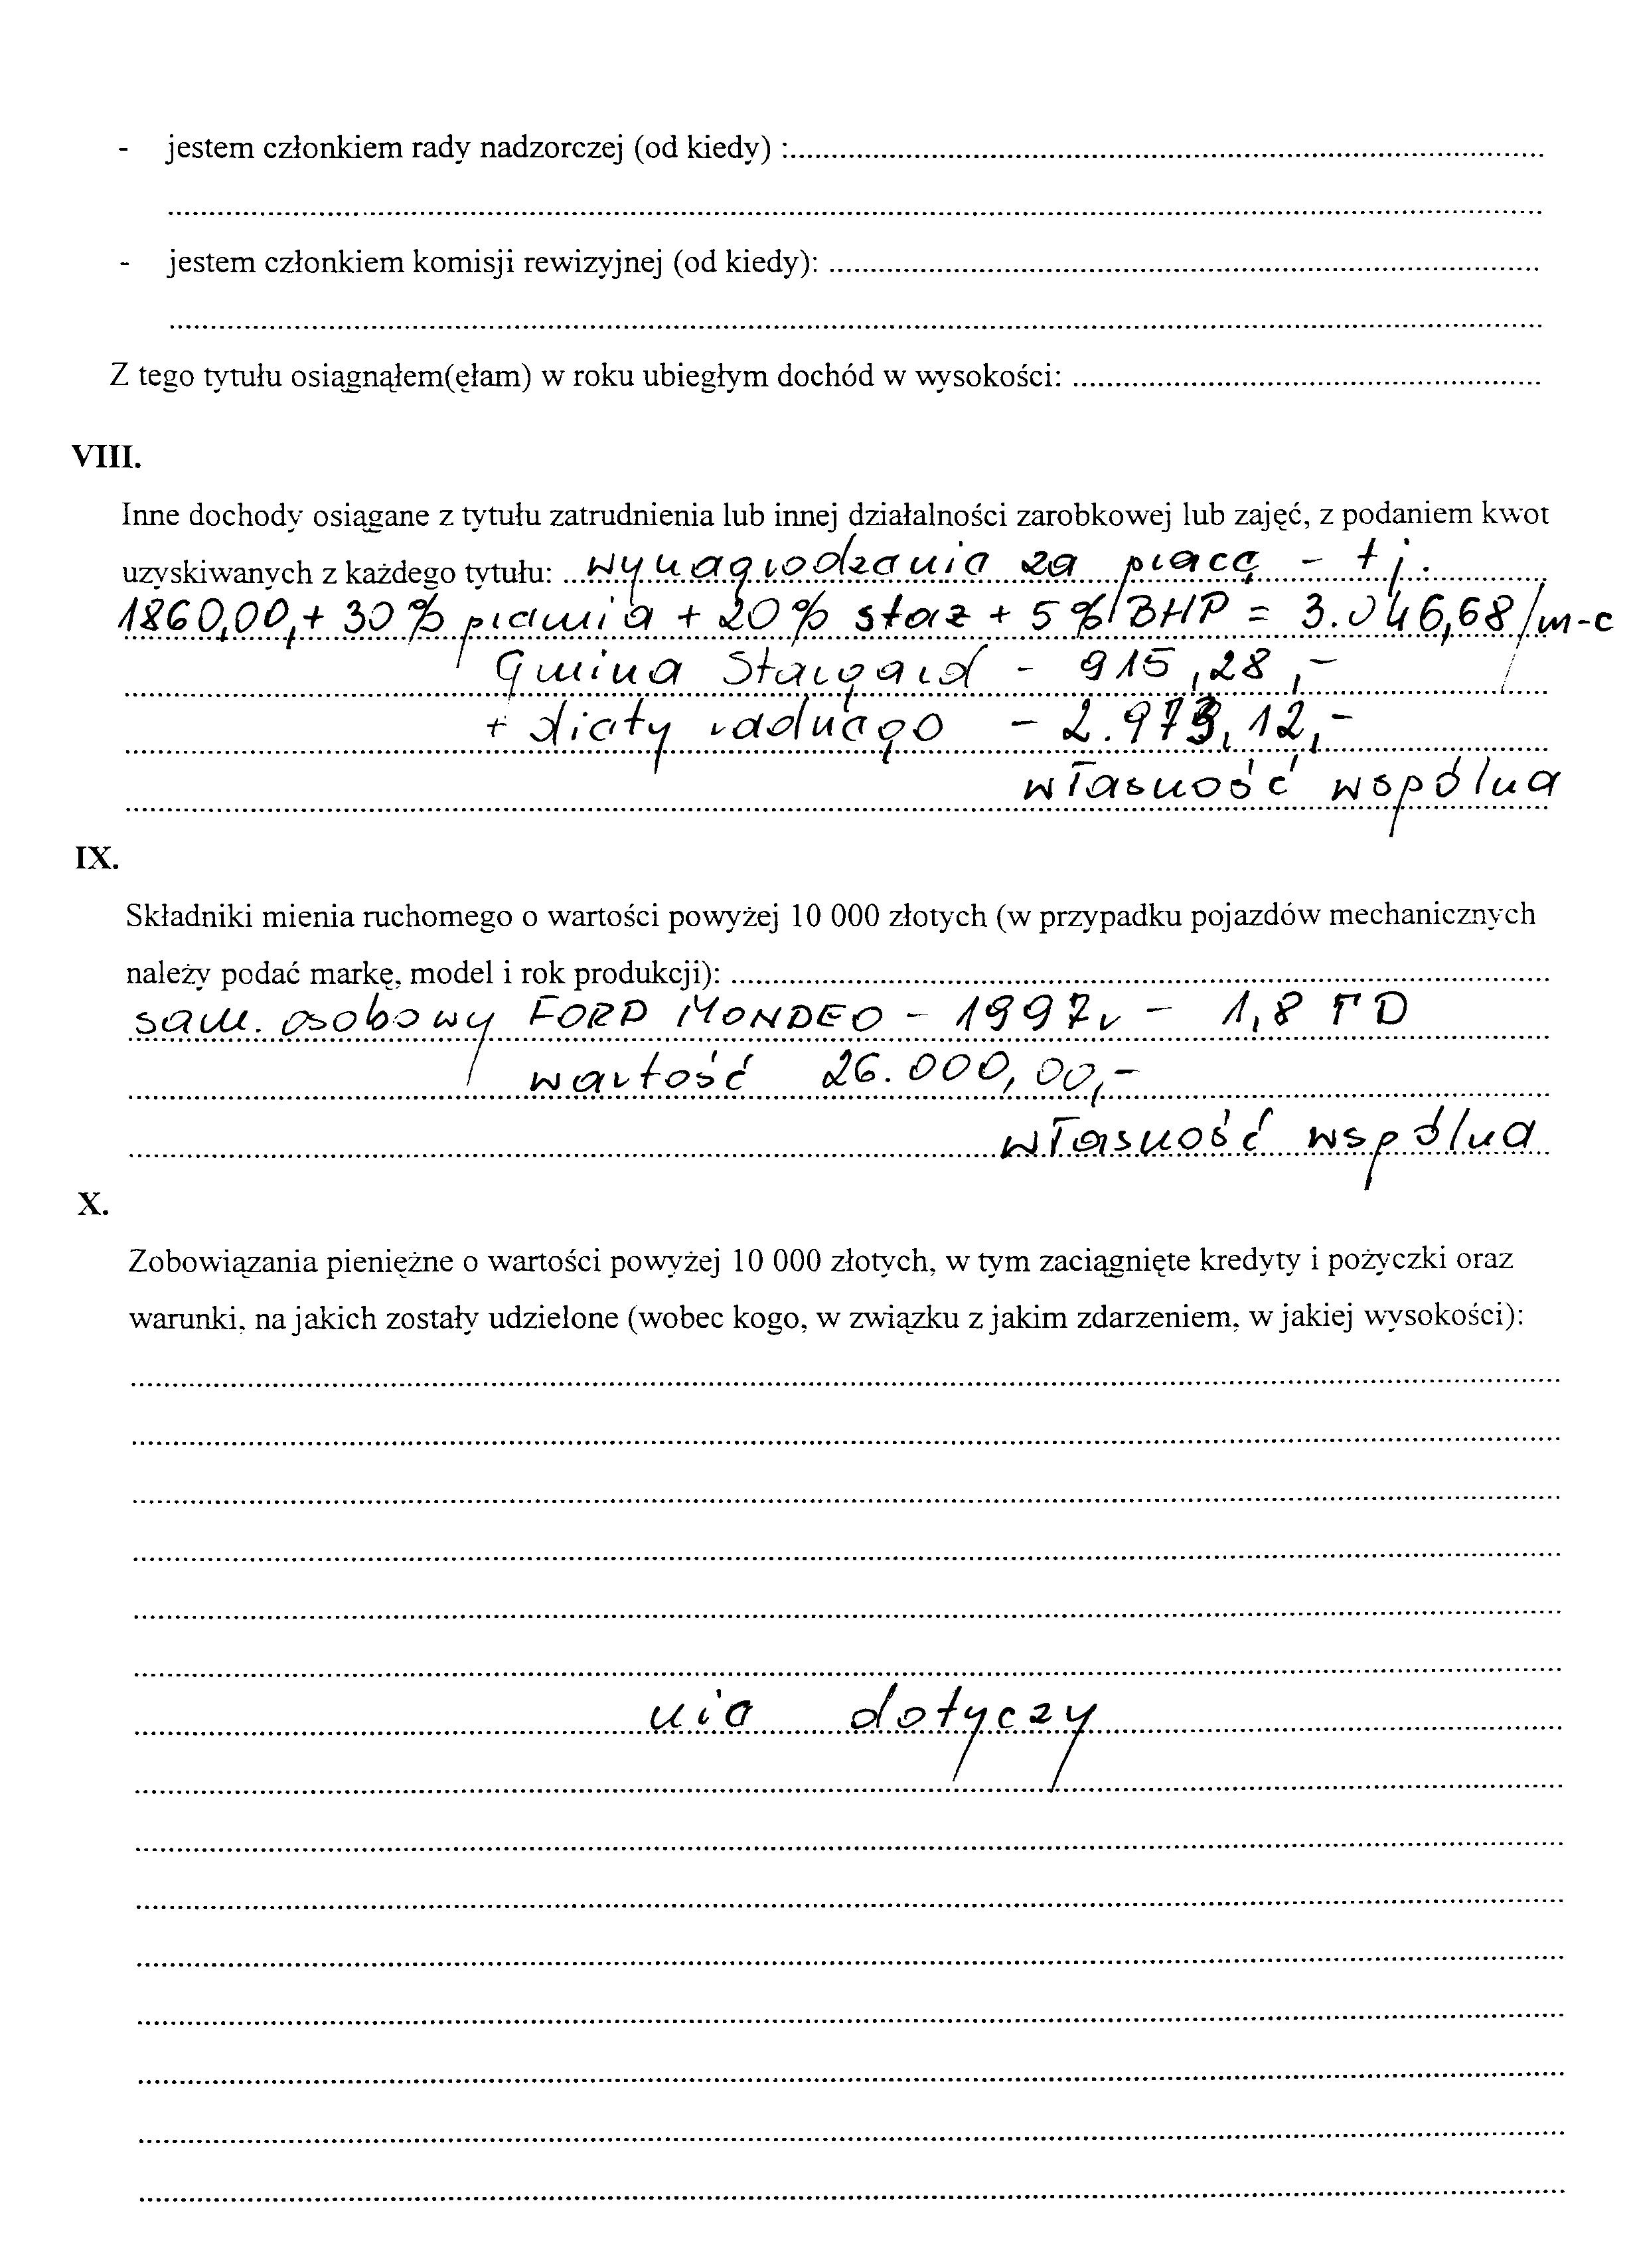 - jestem członkiem rady nadzorczej (od kiedy) :
- jestem członkiem komisji rewizyjnej (od kiedy):
Z tego tytułu osiągnąłem(ęłam) w roku ubiegłym dochód w wysokości:
VIII.
Inne dochody osiągane z tytułu zatrudnienia lub innej działalności zarobkowej lub zajęć, z podaniem kwot
uzyskiwanych z każdego tytułu: wynagrodzenie za pracę - tj.
1860,00,+ 30% premia + 20% staż + 5% BHP = 3.046,68/m-c
Gmina Stargard - 915,28,-
+ diety radnego - 2.973,12,-
własność wspólna
IX.
Składniki mienia ruchomego o wartości powyżej 10 000 złotych (w przypadku pojazdów mechanicznych
należy podać markę, model i rok produkcji):
sam. osobowy FORD MONDEO - 1997r - 1,8 TD
wartość 26.000,00,-
własność wspólna
X.
Zobowiązania pieniężne o wartości powyżej 10 000 złotych, w tym zaciągnięte kredyty i pożyczki oraz
warunki, na jakich zostały udzielone (wobec kogo, w związku z jakim zdarzeniem, w jakiej wysokości):
nie dotyczy